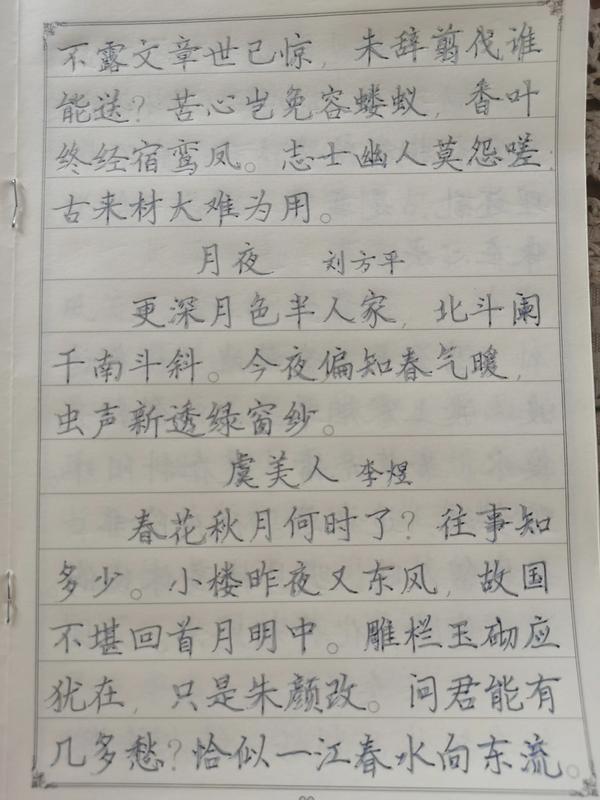 不露文章世已惊，未辞翦伐谁
能送？苦心岂免容蝼蚁，香叶
终经宿鸾凤。志士幽人莫怨嗟：
古来材大难为用。
月夜 刘方平
更深月色半人家，北斗阑
干南斗斜。今夜偏知春气暖，
虫声新透绿窗纱。
虞美人 李煜
春花秋月何时了？往事知
多少。小楼昨夜又东风，故国
不堪回首月明中。雕栏玉砌应
犹在，只是朱颜改。问君能有
几多愁？恰似一江春水向东流。